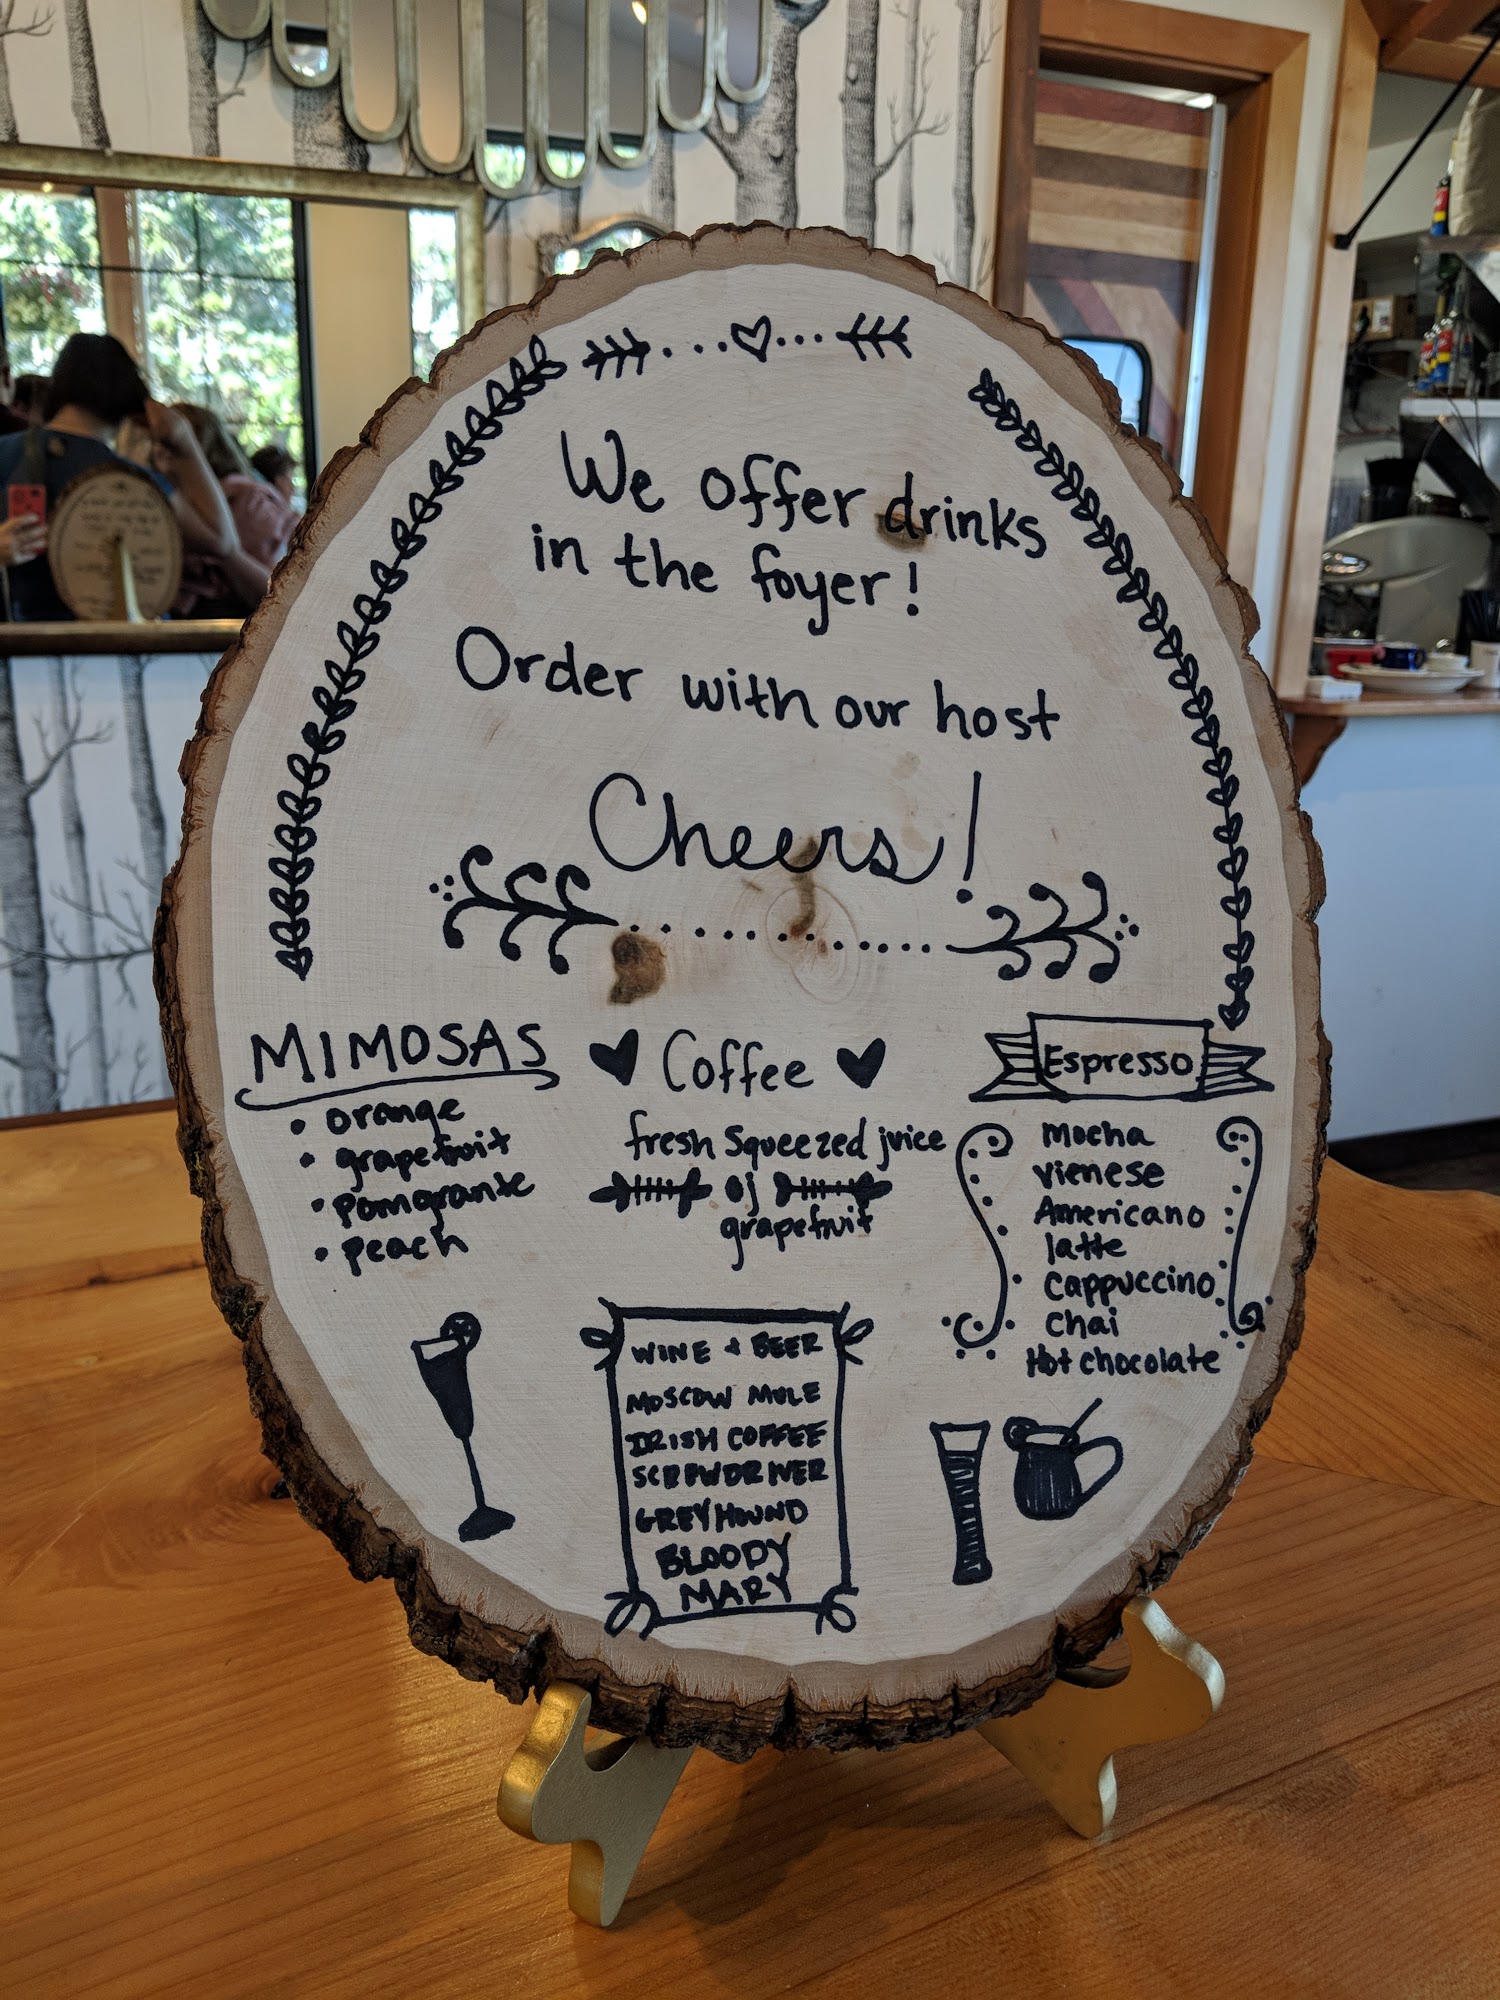 We offer drinks
in the foyer!
Order with our host
Cheers!
MIMOSAS
• orange
• grapefruit
• pomogrante
• peach
Coffee
fresh squeezed juice
oj
grapefruit
Espresso
Mocha
Vienese
Americano
latte
Cappuccino
Chai
Hot chocolate
WINE + BEER
MOSCOW MULE
IRISH COFFEE
SCREWDRIVER
GREYHOUND
BLOODY
MARY